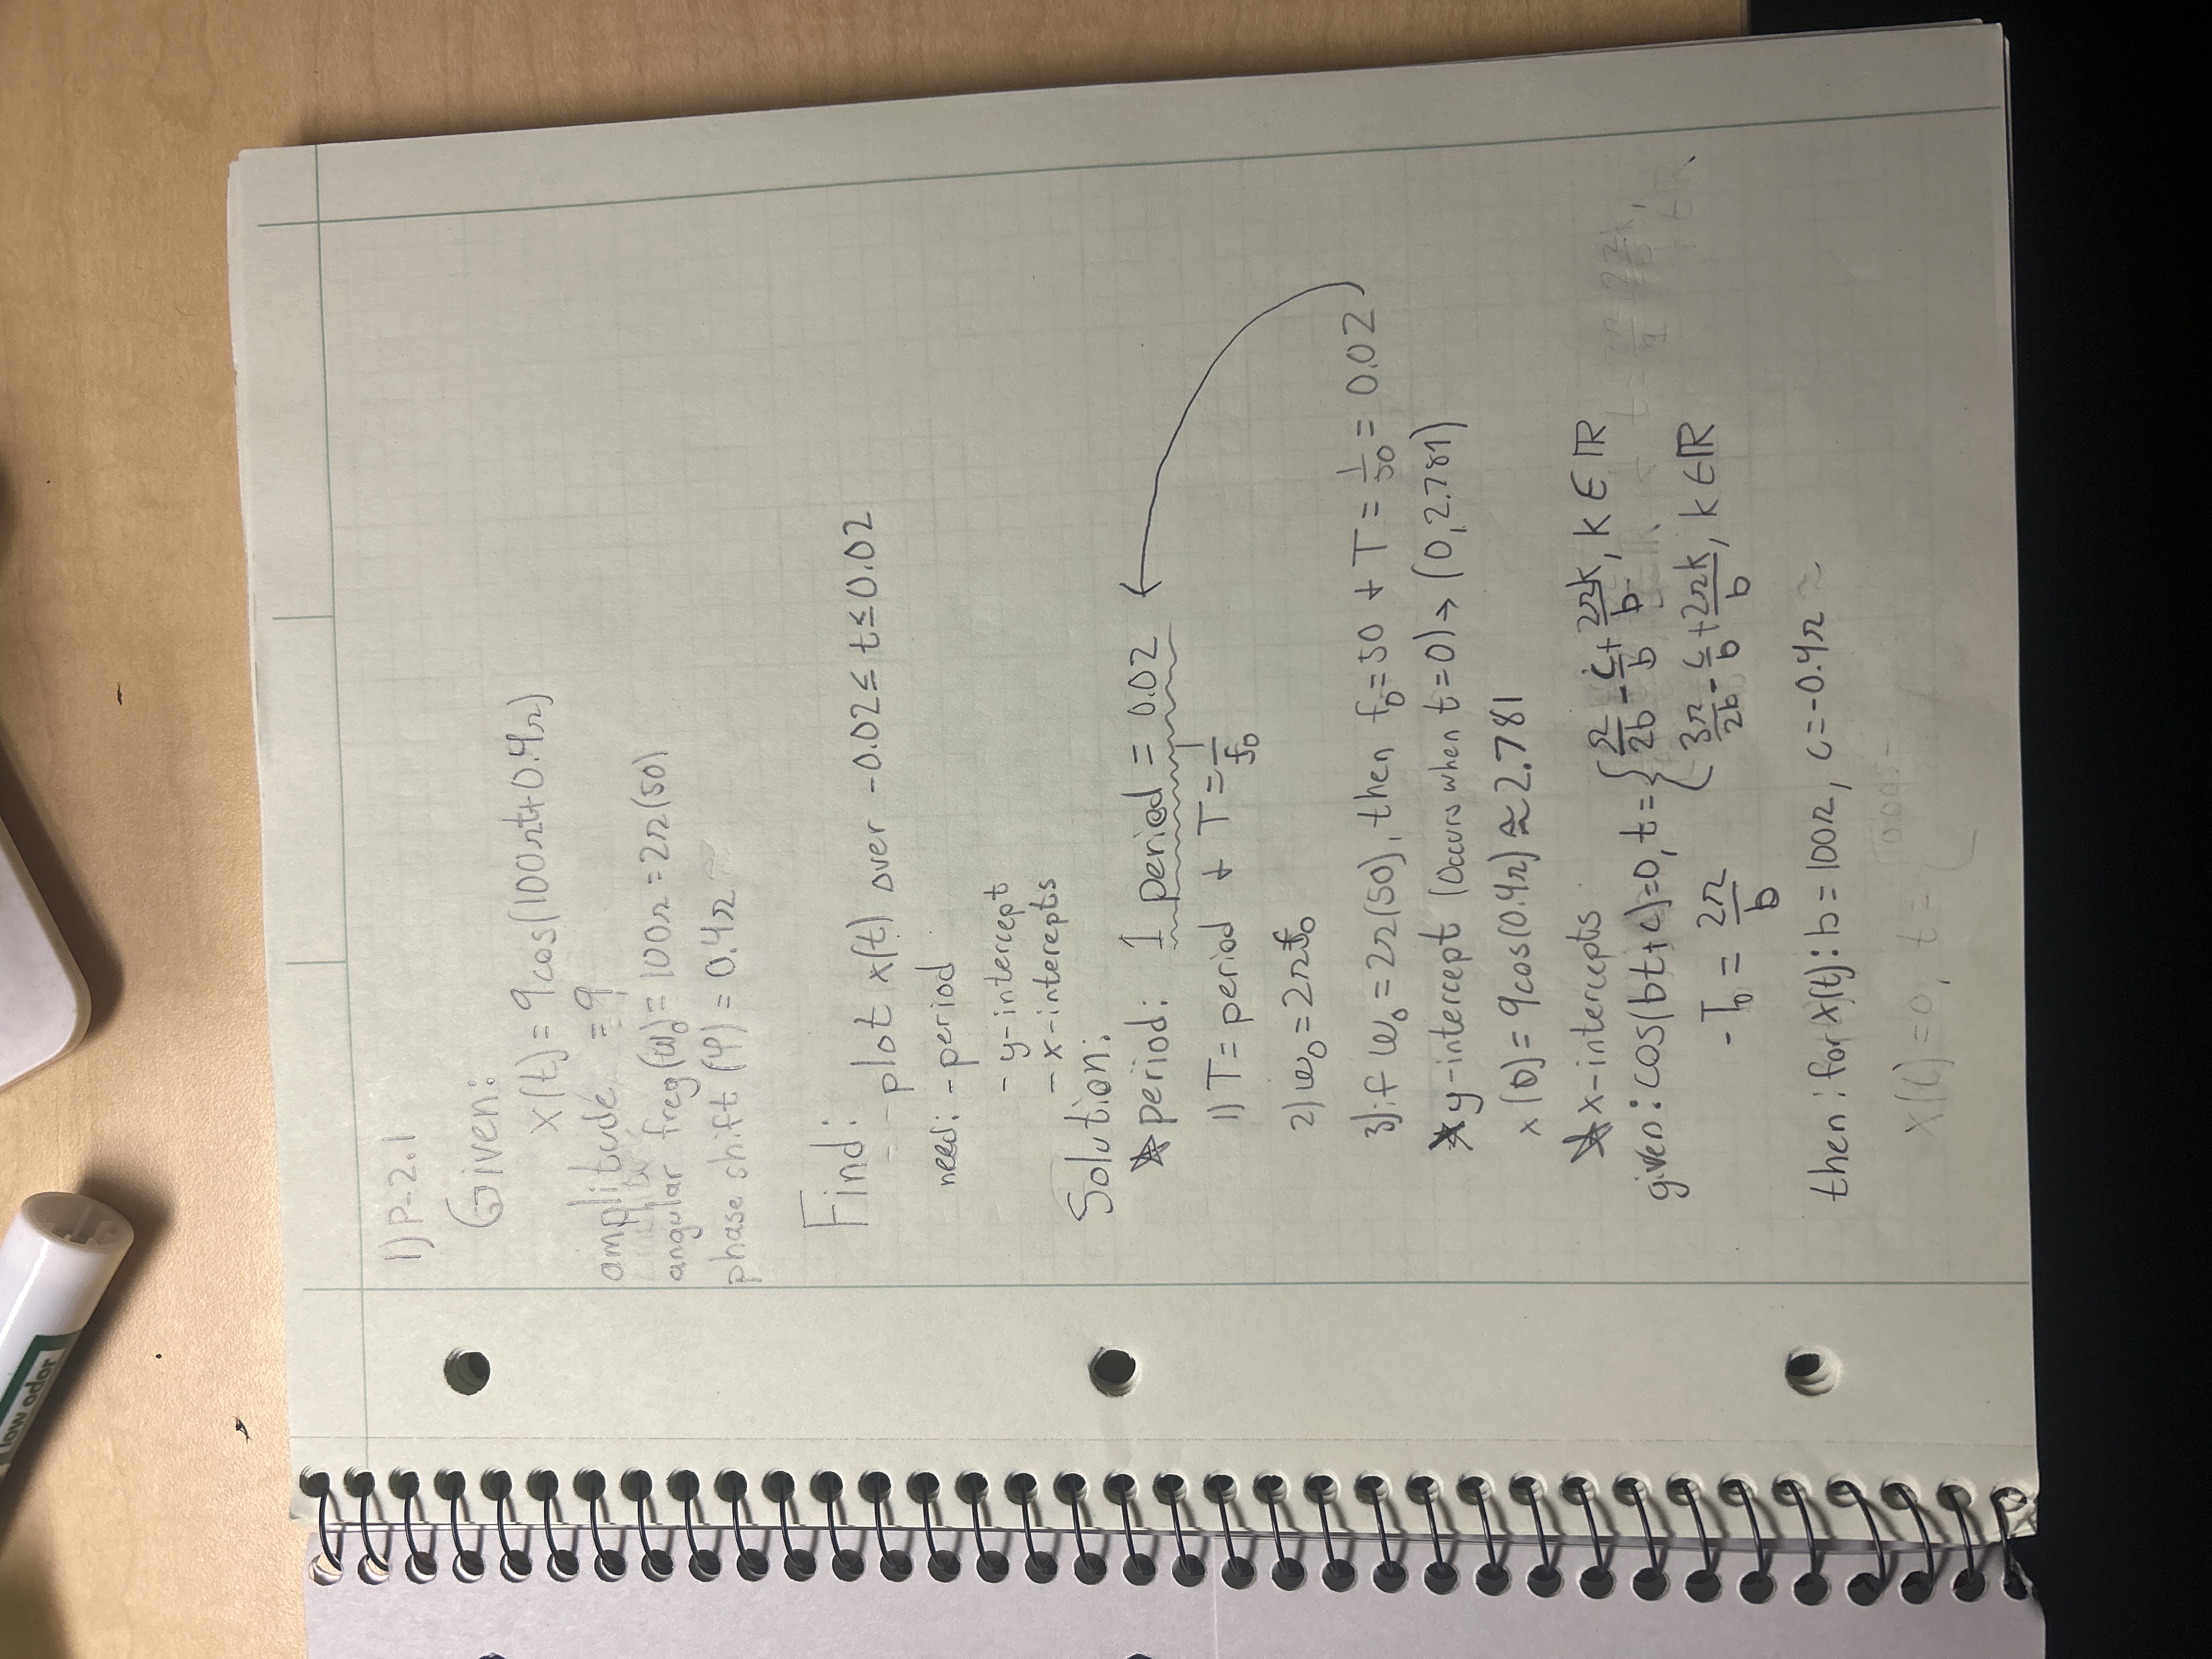 low odor
1) P-2.1
Given:
x(t) = 9cos(100πt+0.4π)
amplitude = 9
angular freq (ω₀) = 100π = 2π(50)
phase shift (φ) = 0.4π
Find:
- plot x(t) over -0.02 ≤ t ≤ 0.02
need: - period
- y-intercept
- x-interepts
Solution:
* period: 1 period = 0.02
1) T = period + T = 1/f₀
2) ω₀ = 2πf₀
3) if ω₀ = 2π(50), then f₀ = 50 + T = 1/50 = 0.02
* y-intercept (Occurs when t=0) → (0, 2.781)
x(0) = 9cos(0.4π) ≈ 2.781
* x-intercepts
given: cos(bt+c)=0, t = { π/2b - c/b + 2πk/b, k ∈ ℝ
3π/2b - c/b + 2πk/b, k ∈ ℝ
- T₀ = 2π/b
then: for x(t): b = 100π, c = -0.4π
x(t) = 0, t = { 0.005-